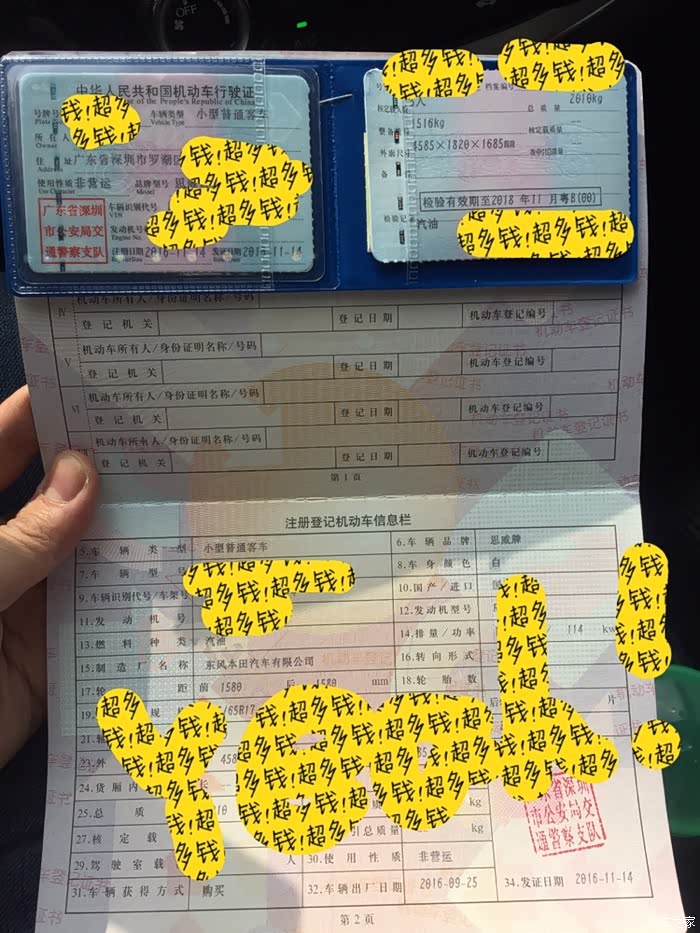 OFF
中华人民共和国机动车行驶证
of the People's Republic of China
车辆类型 小型普通客车
Vehicle Type
Owner
住 址 广东省深圳市罗湖区
使用性质 非营运 品牌型号
Use Character Model
广东省深圳
市公安局交
通警察支队
车辆识别代号
VIN
发动机号
Engine No.
注册日期 发证日期
档案编号
核定载人 5人 总 质 量 2010kg
整备质量 1516kg 核定载质量
外廓尺寸 4585×1820×1685
备 注
检验有效期至2018 年11 月粤B(00)
检验记录
汽油
超多钱!
Ⅳ 机动车所有人/身份证明名称/号码
登 记 机 关 登 记 日 期 机动车登记编号
Ⅴ 机动车所有人/身份证明名称/号码
登 记 机 关 登 记 日 期 机动车登记编号
Ⅵ 机动车所有人/身份证明名称/号码
登 记 机 关 登 记 日 期 机动车登记编号
机动车所有人/身份证明名称/号码
登 记 机 关 登 记 日 期 机动车登记编号
第 1 页
注册登记机动车信息栏
5.车 辆 类 型 小型普通客车 6.车 辆 品 牌 思威牌
7.车 辆 型 号 8.车 身 颜 色 白
9.车辆识别代号/车架号 10.国 产 / 进 口
11.发 动 机 号 12.发 动 机 型 号
13.燃 料 种 类 汽油 14.排 量 / 功 率 114 kw
15.制 造 厂 名 称 东风本田汽车有限公司 16.转 向 形 式
17.轮 距 前 1580 后 1580 mm 18.轮 胎 数
/65R17 片
23.外
24.货 厢 内
25.总 质 kg
27.核 定 载 引总质量 kg
29.驾 驶 室 载 人 30.使 用 性 质 非营运
31.车 辆 获 得 方 式 购买 32.车 辆 出 厂 日 期 2016-09-25 34.发 证 日 期 2016-11-14
东省深圳
市公安局交
通警察支队
第 2 页